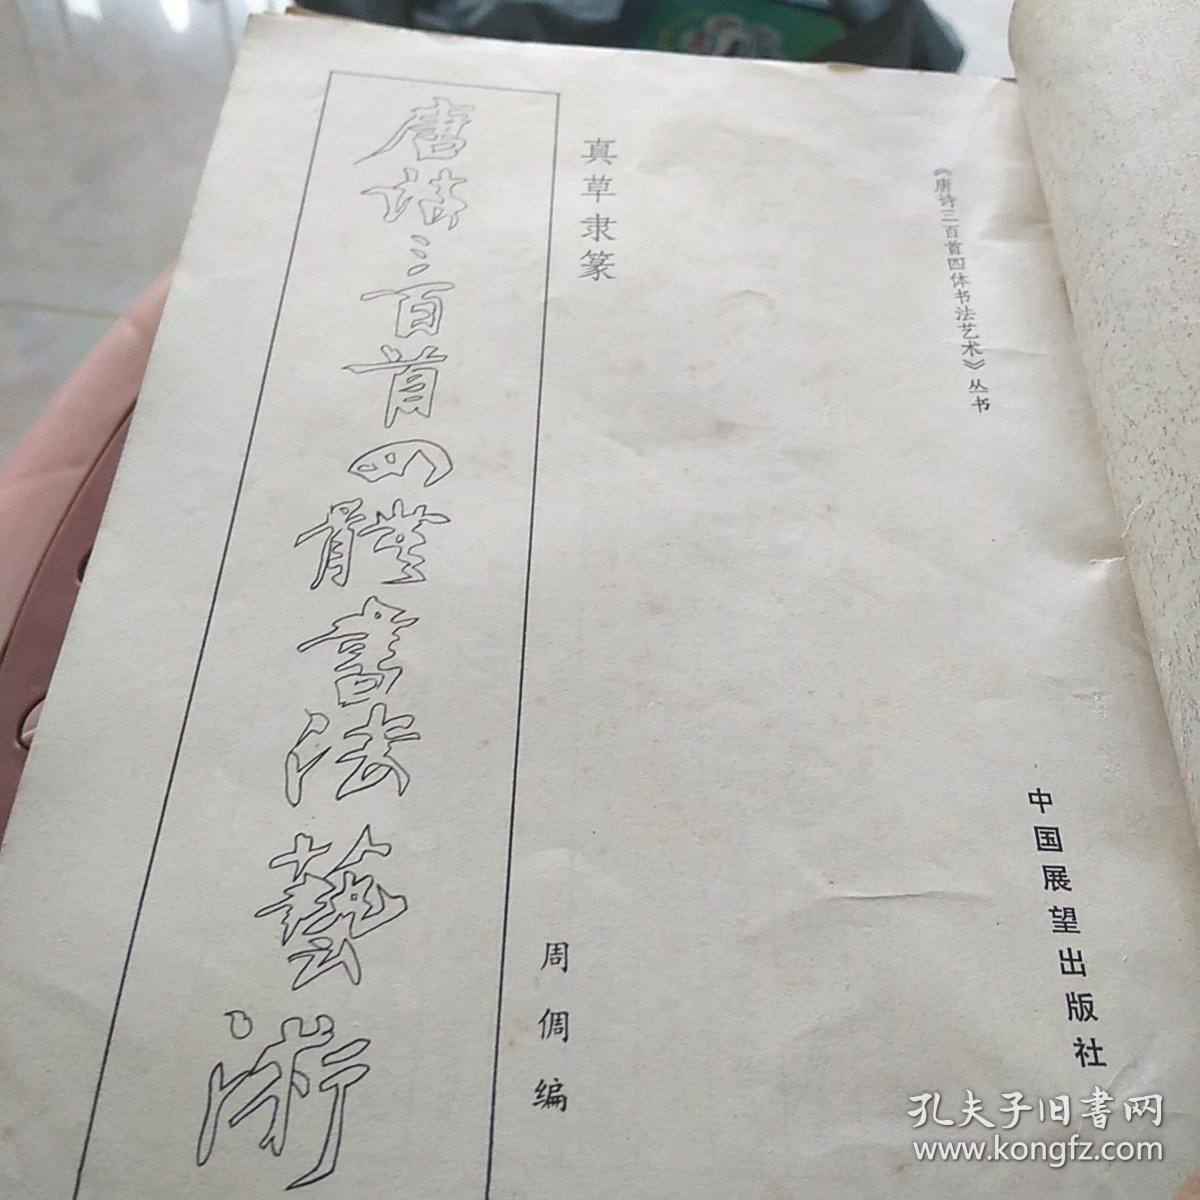 《唐诗三百首四体书法艺术》丛书
真草隶篆
唐詩三百首四體書法藝術
周倜编
中国展望出版社
孔夫子旧书网
www.kongfz.com